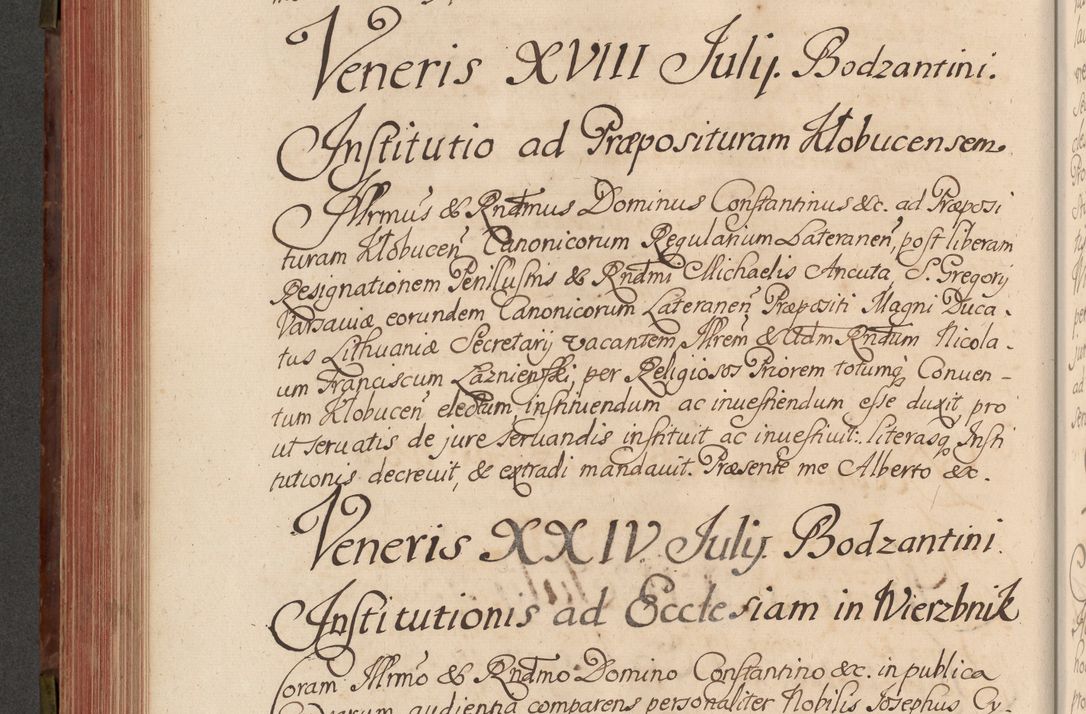 Veneris XVIII Julij. Bodzantini.
Institutio ad Præposituram Kłobucensem.
Illrmus & Rndmus Dominus Constantinus &c. ad Præposi
turam Kłobucen Canonicorum Regularium Lateranen, post liberam
Resignationem Perillustris & Rndmi Michaelis Ancuta, S. Gregorij
Varsaviæ eorundem Canonicorum Lateranen Præpositi Magni Duca-
tus Lithuaniæ Secretarij vacantem, Illrem & Adm Rndum Nicola-
um Franciscum Laznienski, per Religiosos Priorem totumq Conven-
tum Klobucen electum, instituendum ac inuestiendum esse duxit, pro
ut servatis de jure servandis instituit ac inuestiuit: literasq Insti
tutionis decreuit, & extradi mandauit. Præsente me Alberto &c.
Veneris XXIV. Julij. Bodzantini.
Institutionis ad Ecclesiam in Wierzbnik
Coram Illrmo & Rndmo Domino Constantino &c. in publica
audientia comparens personaliter Nobilis Josephus Cy-